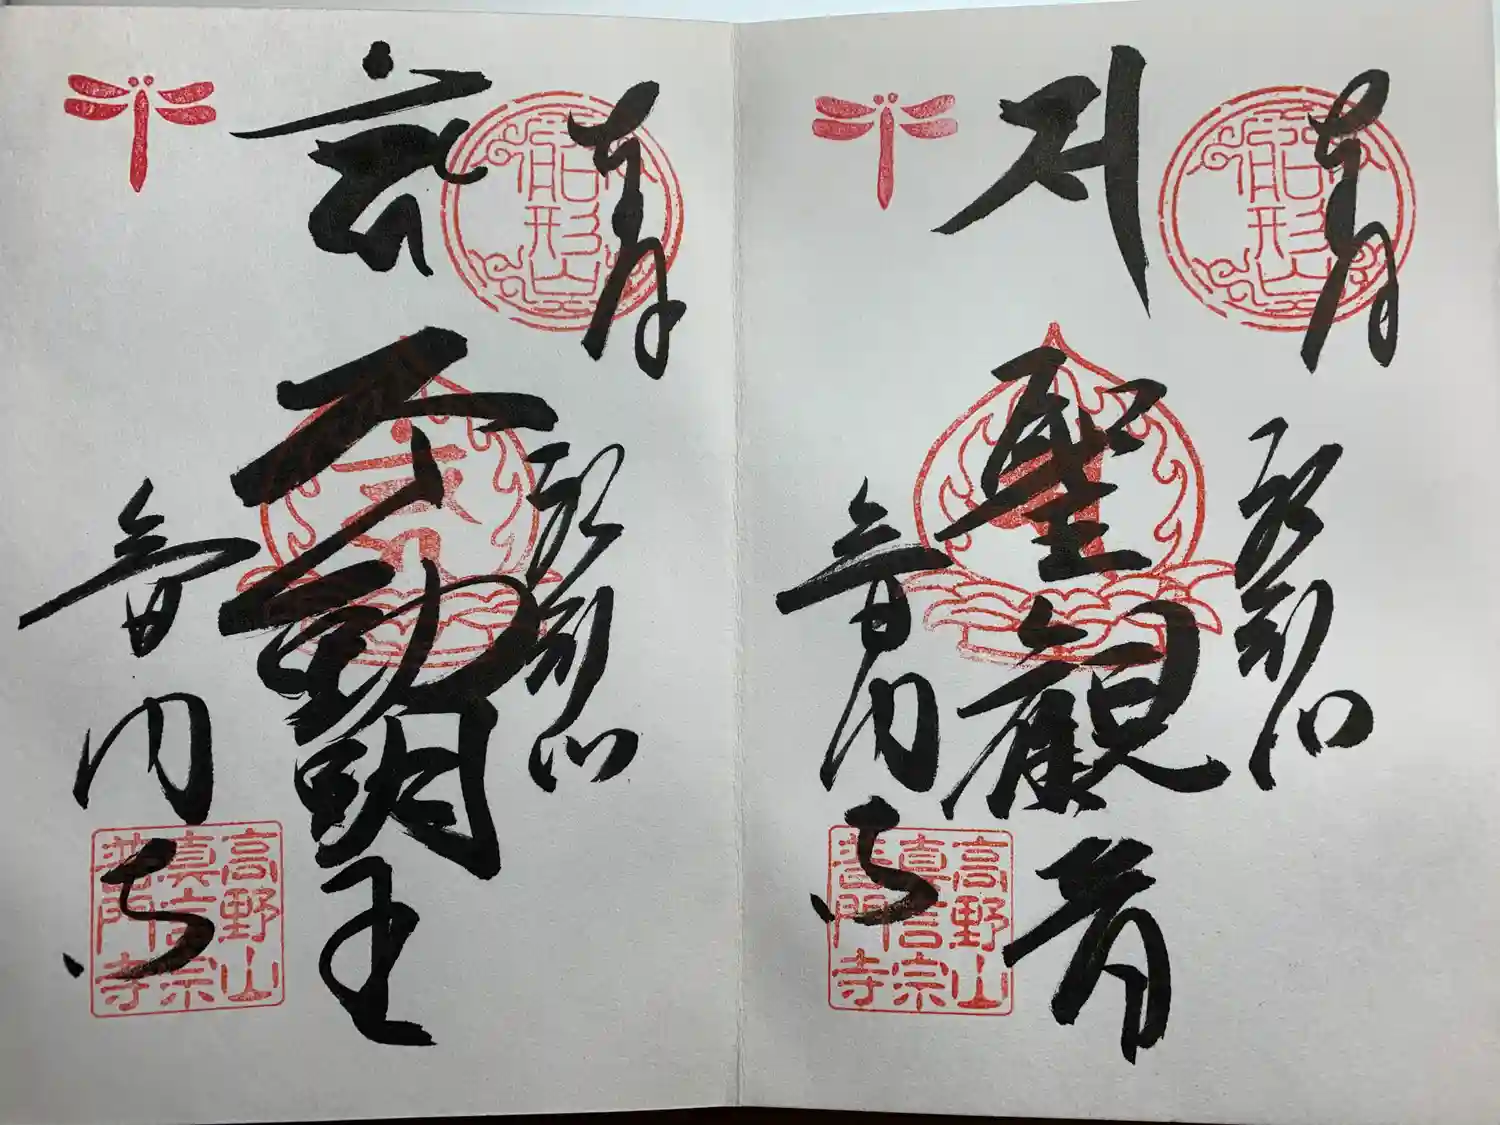 奉拝
船形山
船形山
聖観音
普門寺
高野山
真言宗
普門寺
奉拝
船形山
船形山
不動明王
普門寺
高野山
真言宗
普門寺